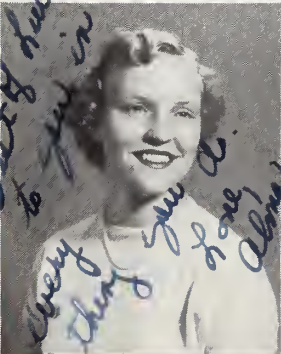 of
to you in
every
thing you do.
Love,
Alma